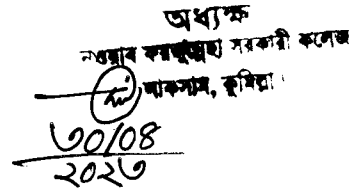 অধ্যক্ষ
নওয়াব ফয়জুন্নেছা সরকারী কলেজ
লাকসাম, কুমিল্লা।
৩০/০৪
২০২৩